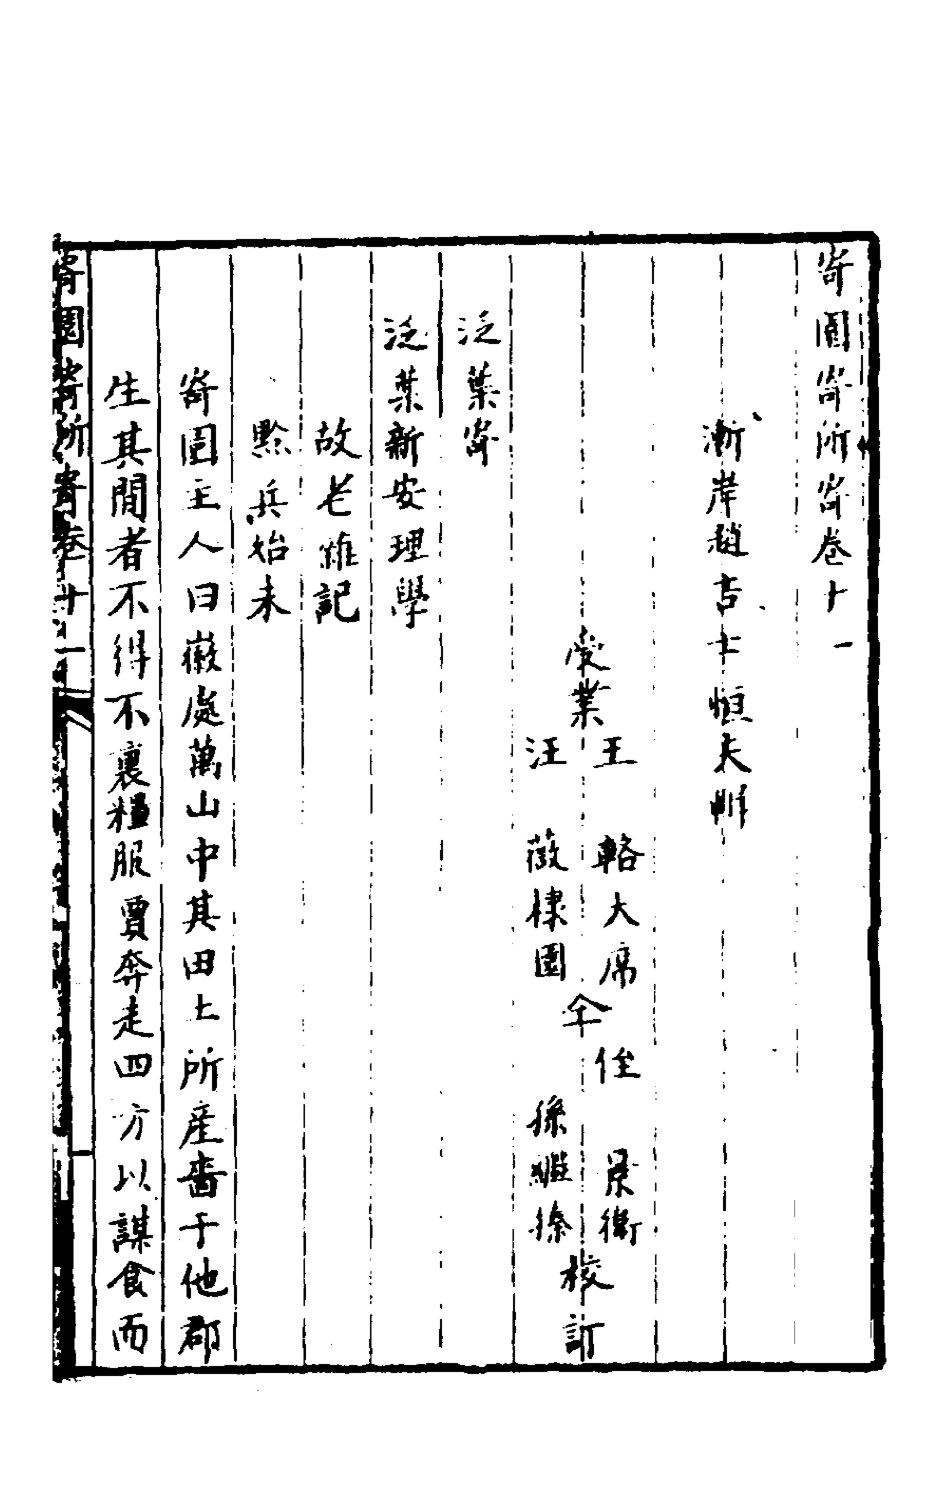 寄園寄所寄卷十一
漸岸趙吉士恒夫輯
受業
王輅大席
汪薇棣園
仝
侄景衛
孫繼搽
校訂
泛葉寄
泛葉新安理學
故老雜記
黟兵始末
寄園主人曰徽處萬山中其田土所産嗇于他郡
生其間者不得不裹糧服賈奔走四方以謀食而
寄園寄所寄卷十一